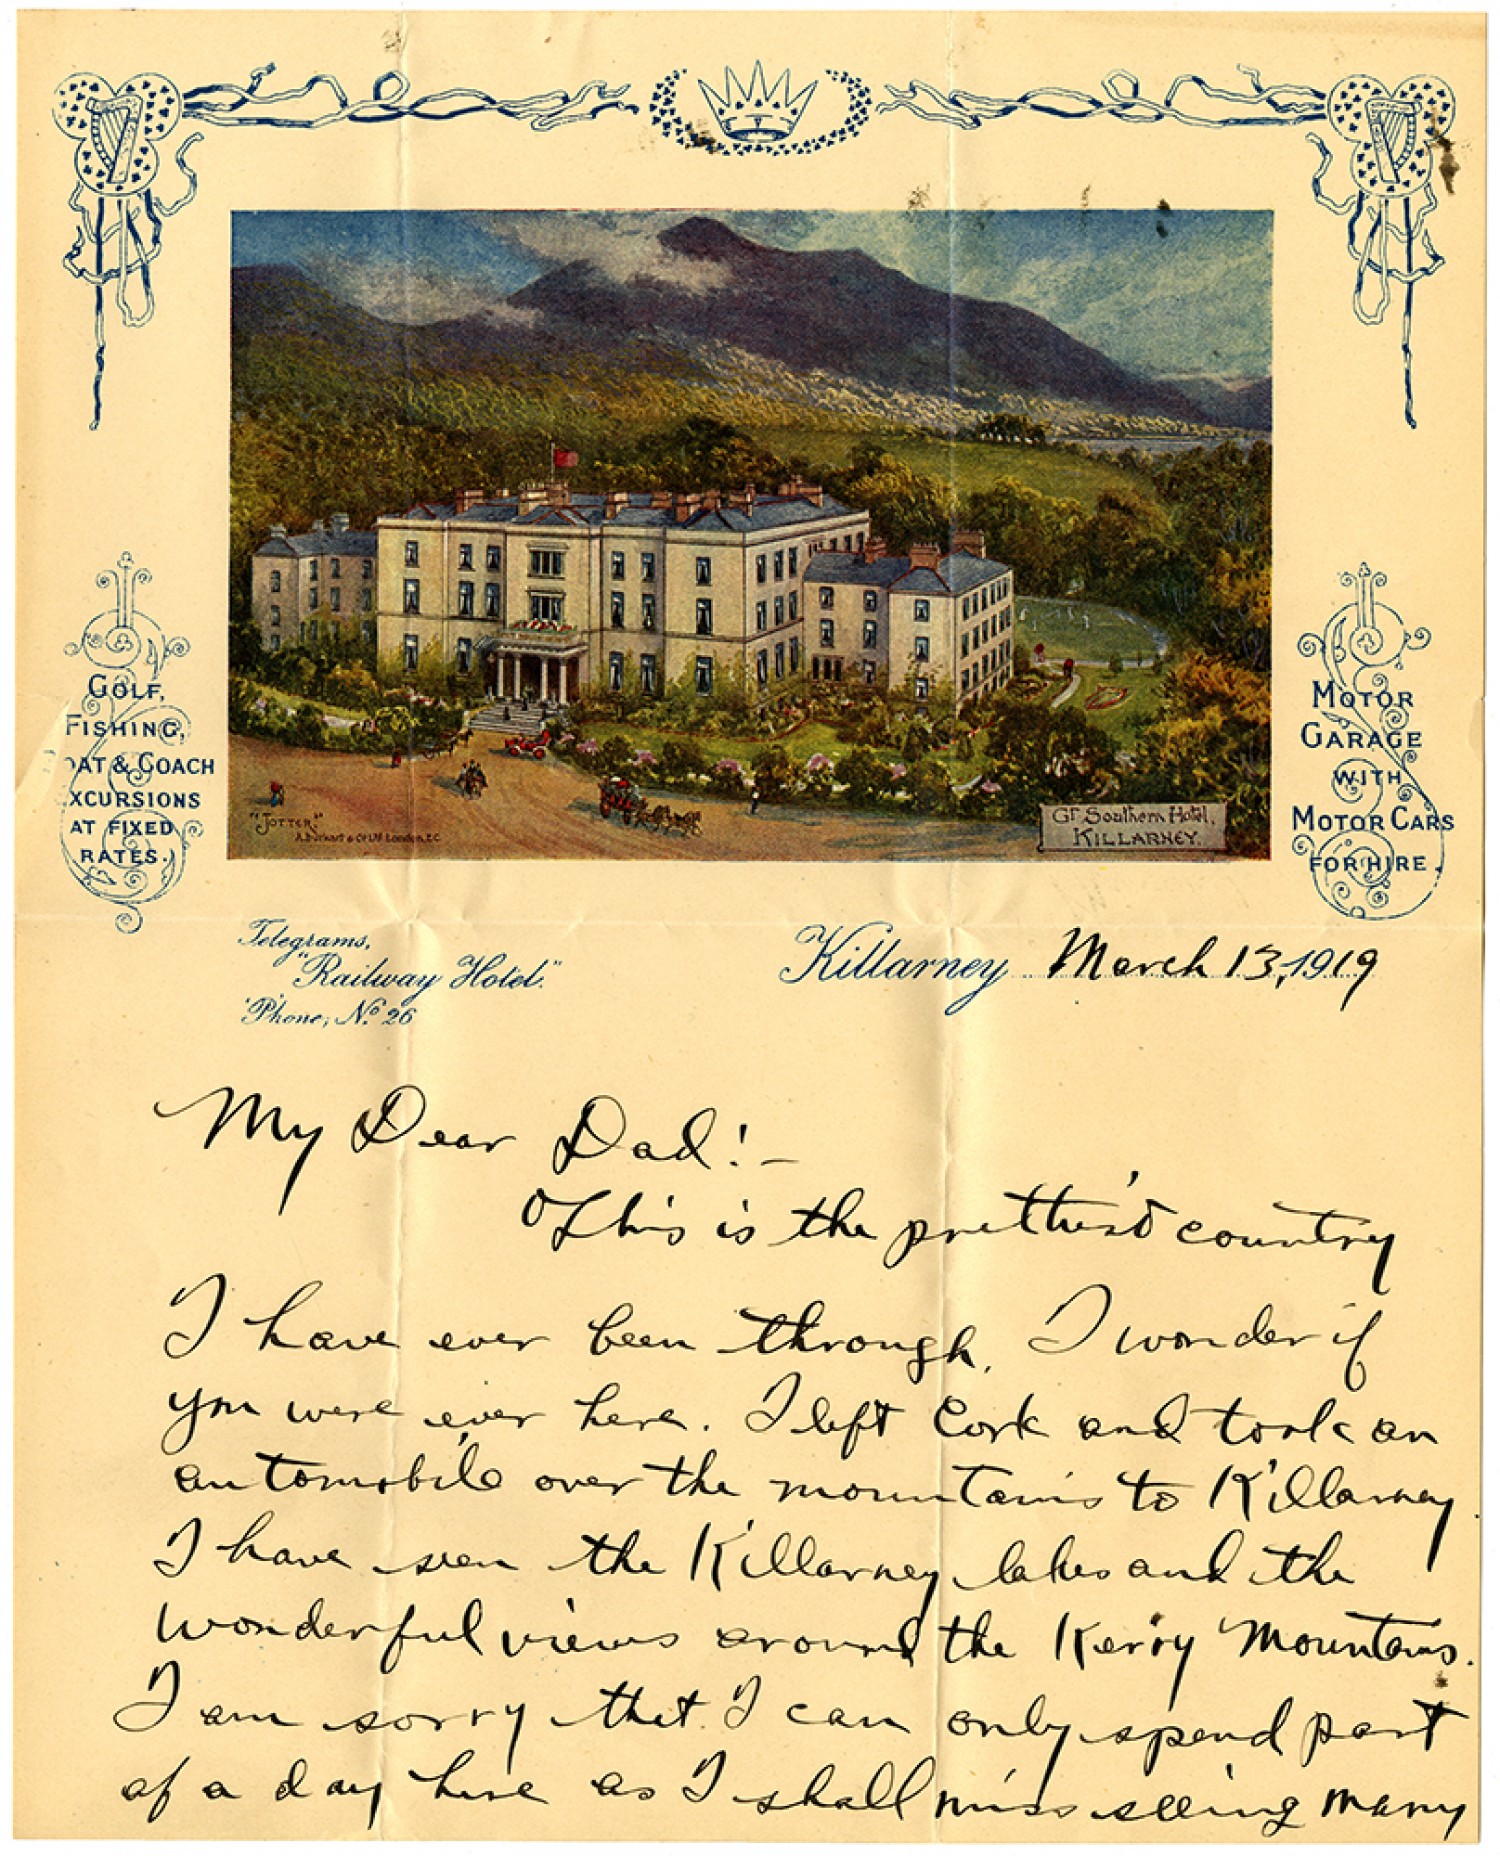 GOLF,
FISHING,
OAT & COACH
XCURSIONS
AT FIXED
RATES.
MOTOR
GARAGE
WITH
MOTOR CARS
FOR HIRE.
"JOTTER"
LONDON. E.C.
GT SOUTHERN HOTEL,
KILLARNEY.
Telegrams,
"Railway Hotel."
'Phone, No 26
Killarney March 13, 1919
My Dear Dad! —
This is the prettiest country
I have ever been through. I wonder if
you were ever here. I left Cork and took an
automobile over the mountains to Killarney
I have seen the Killarney lakes and the
wonderful views around the Kerry Mountains.
I am sorry that I can only spend part
of a day here as I shall miss seeing many